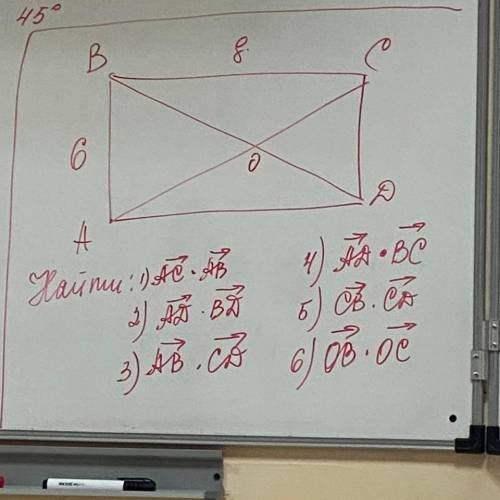 45°
B 8 C
6
O
A
D
Найти: 1) AC · AB
2) AD · BD
3) AB · CD
4) AD · BC
5) CB · CD
6) OB · OC